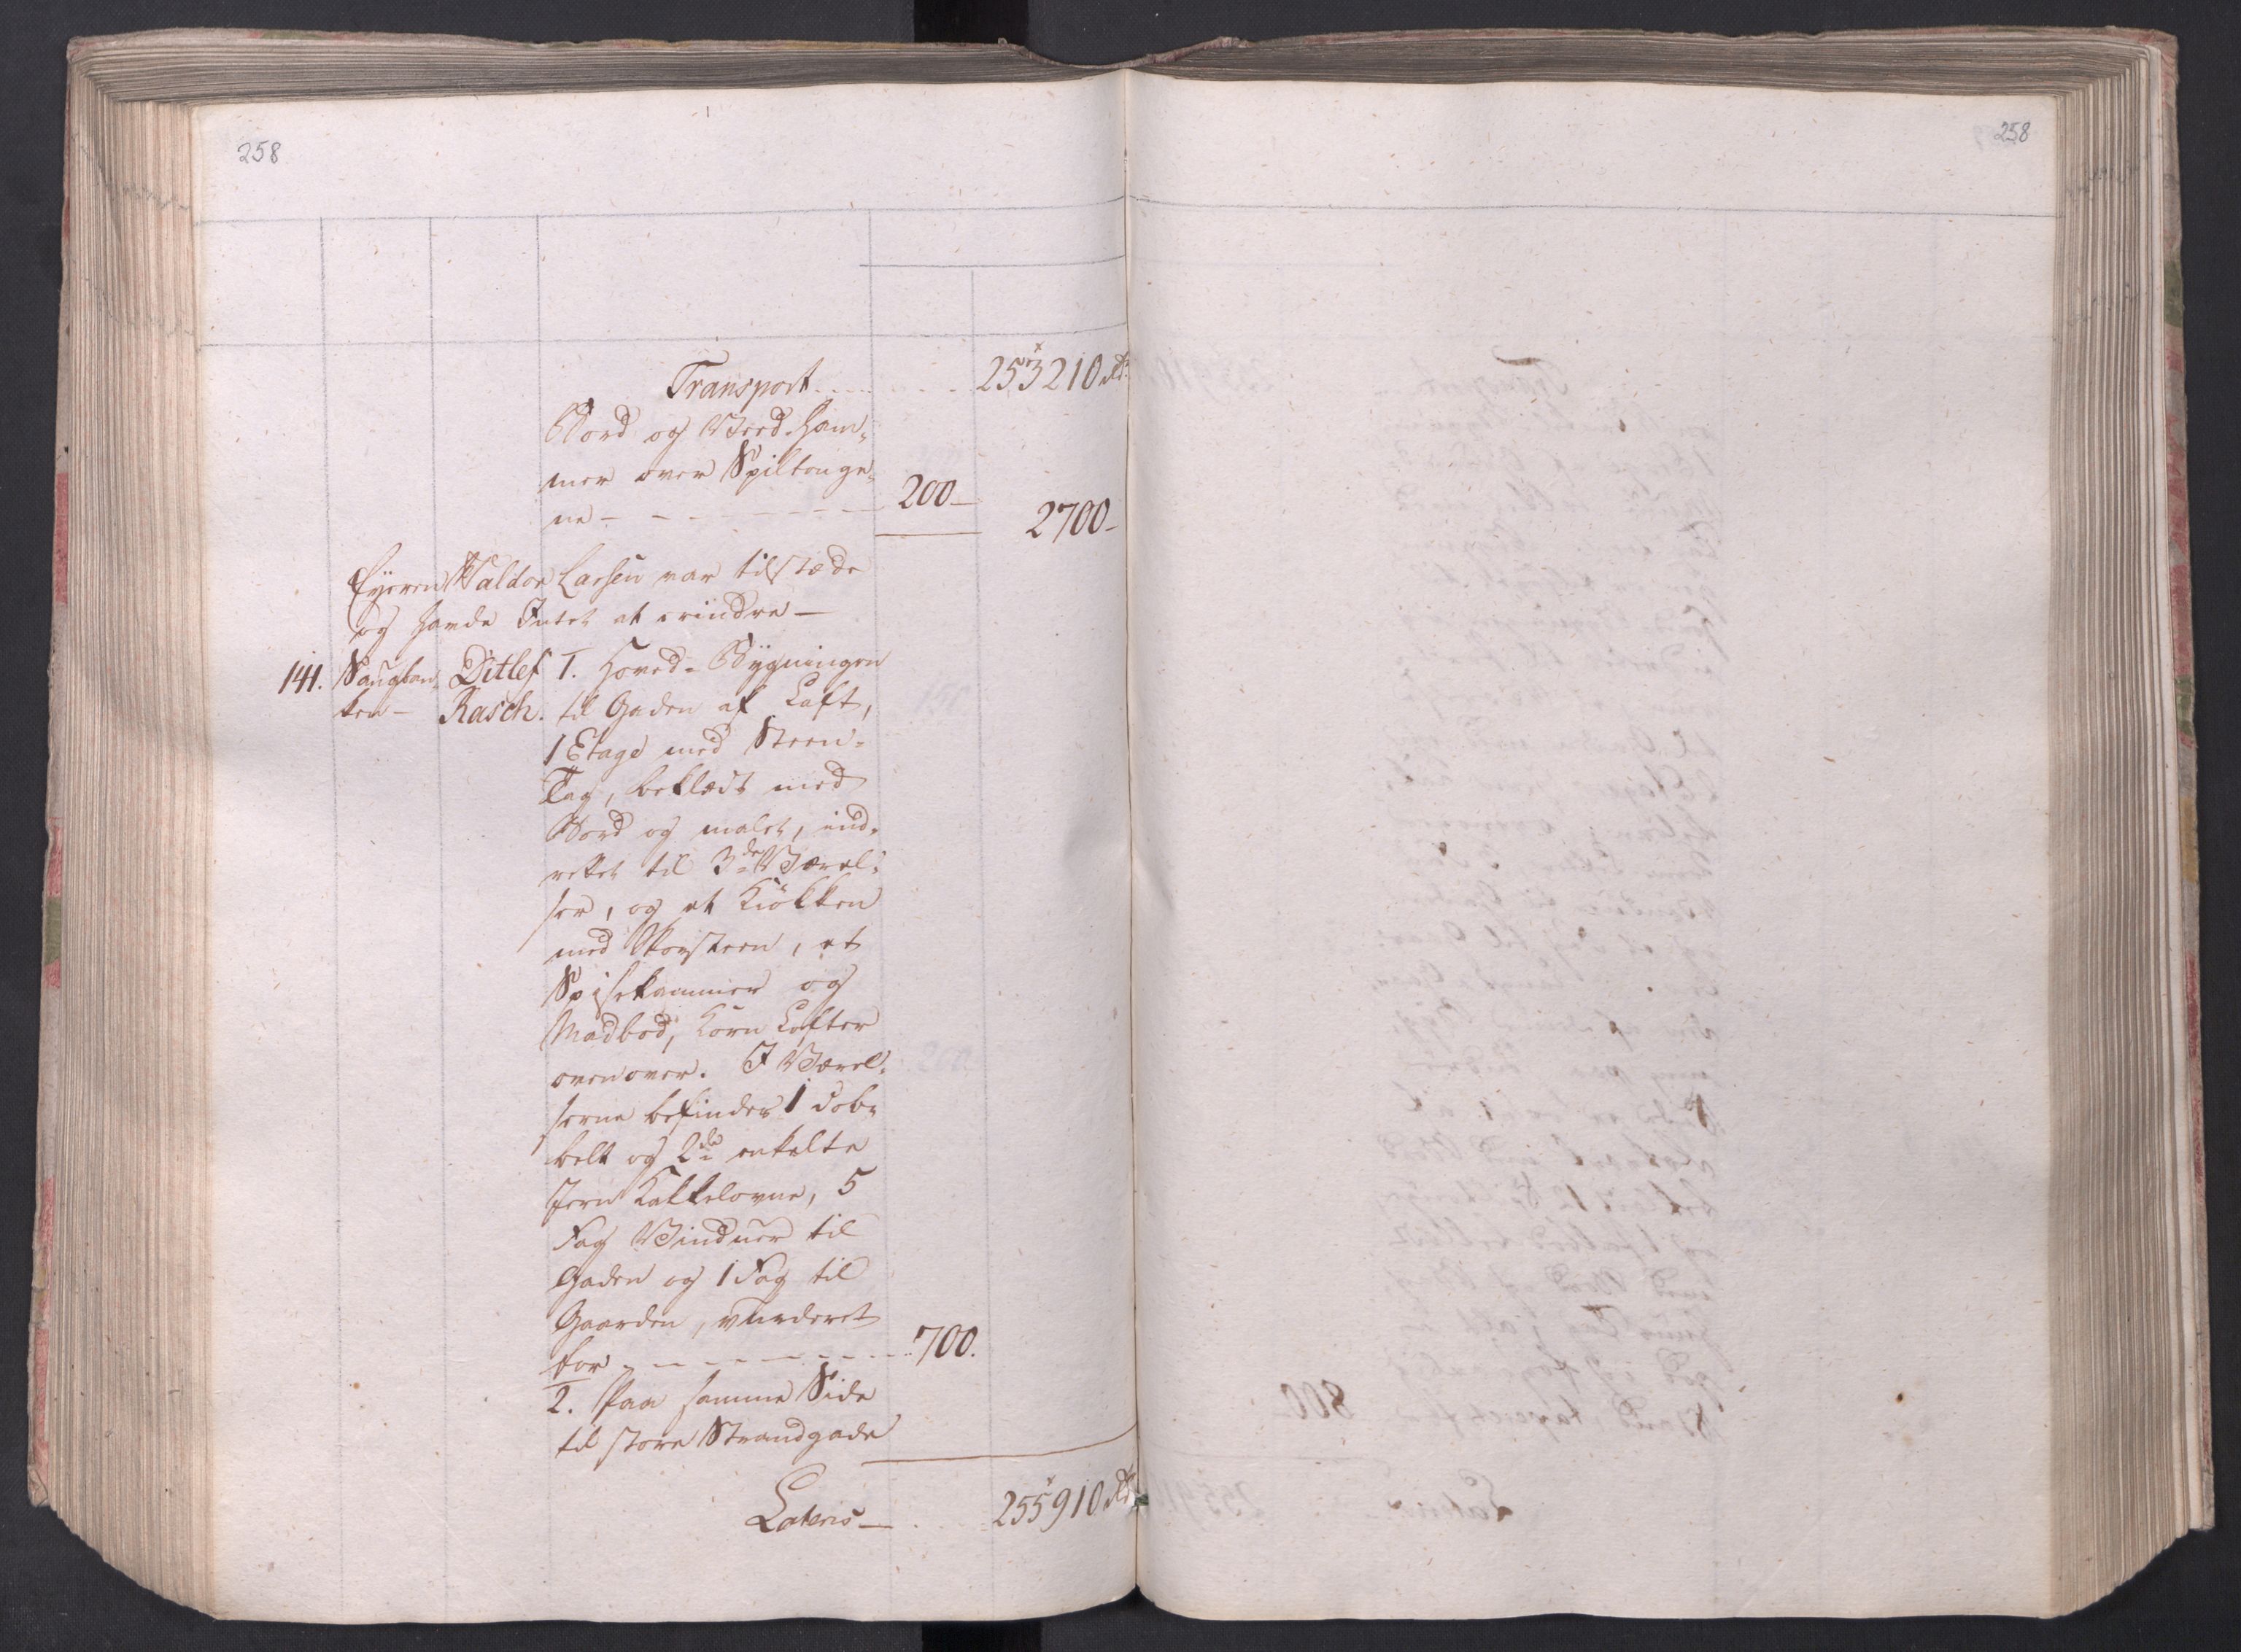 258
258
Transport 253210 Rd.
Bord og Verd. Ham¬
mer over Spiltonge¬
ne — 200 — 2700 —
Eyeren Waldor Larsen var tilstæde
og havde Intet at erindre —
141. Saugban¬ Ditlef 1. Hoved-Bygningen
ken — Rasch. til Gaden af Laft,
1 Etage med Steen-
Tag, beklædt med
Bord og malet, ind¬
rettet til 3de Værel¬
ser, og et Kiökken
med Skorsteen, et
Spisekammer og
Madbod, Korn Lofter
ovenover. I Værel¬
serne befindes 1 dob¬
belt og 2de enkelte
Jern Kakkelovne, 5
Fag Vinduer til
Gaden og 1 Fag til
Gaarden, vurderet
for 700.
2. Paa samme Side
til store Strandgade
Lateris — 255910 Rd.